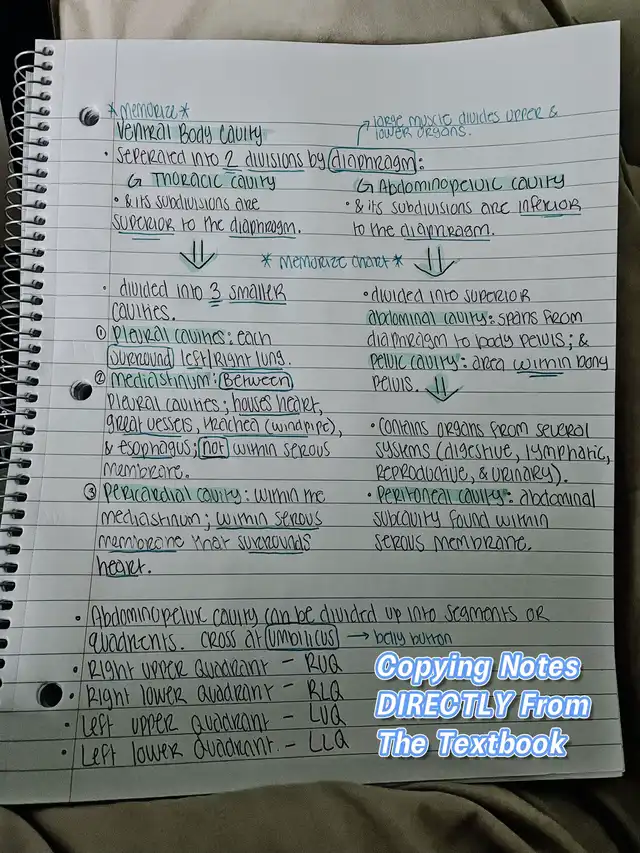 *Memorize*
Ventral Body Cavity
large muscle divides upper &
lower organs.
• Seperated into 2 divisions by diaphragm:
↳ Thoracic cavity
• & its subdivisions are
superior to the diaphragm.
↳ Abdominopelvic cavity
• & its subdivisions are inferior
to the diaphragm.
* Memorize Chart *
• divided into 3 smaller
cavities.
① Pleural cavities: each
surround left/right lung.
② Mediastinum: Between
pleural cavities; houses heart,
great vessels, trachea (windpipe),
& esophagus; not within serous
membrane.
③ Pericardial cavity: within the
mediastinum; within serous
membrane that surrounds
heart.
• divided into superior
abdominal cavity: spans from
diaphragm to body pelvis; &
pelvic cavity: area within bony
pelvis.
• contains organs from several
systems (digestive, lymphatic,
reproductive, & urinary).
• Peritoneal cavity: abdominal
subcavity found within
serous membrane.
• Abdominopelvic cavity can be divided up into segments or
quadrents. cross at umbilicus → belly button
• Right upper quadrant – RUQ
• Right lower quadrant – RLQ
• Left upper quadrant – LUQ
• Left lower quadrant – LLQ
Copying Notes
DIRECTLY From
The Textbook